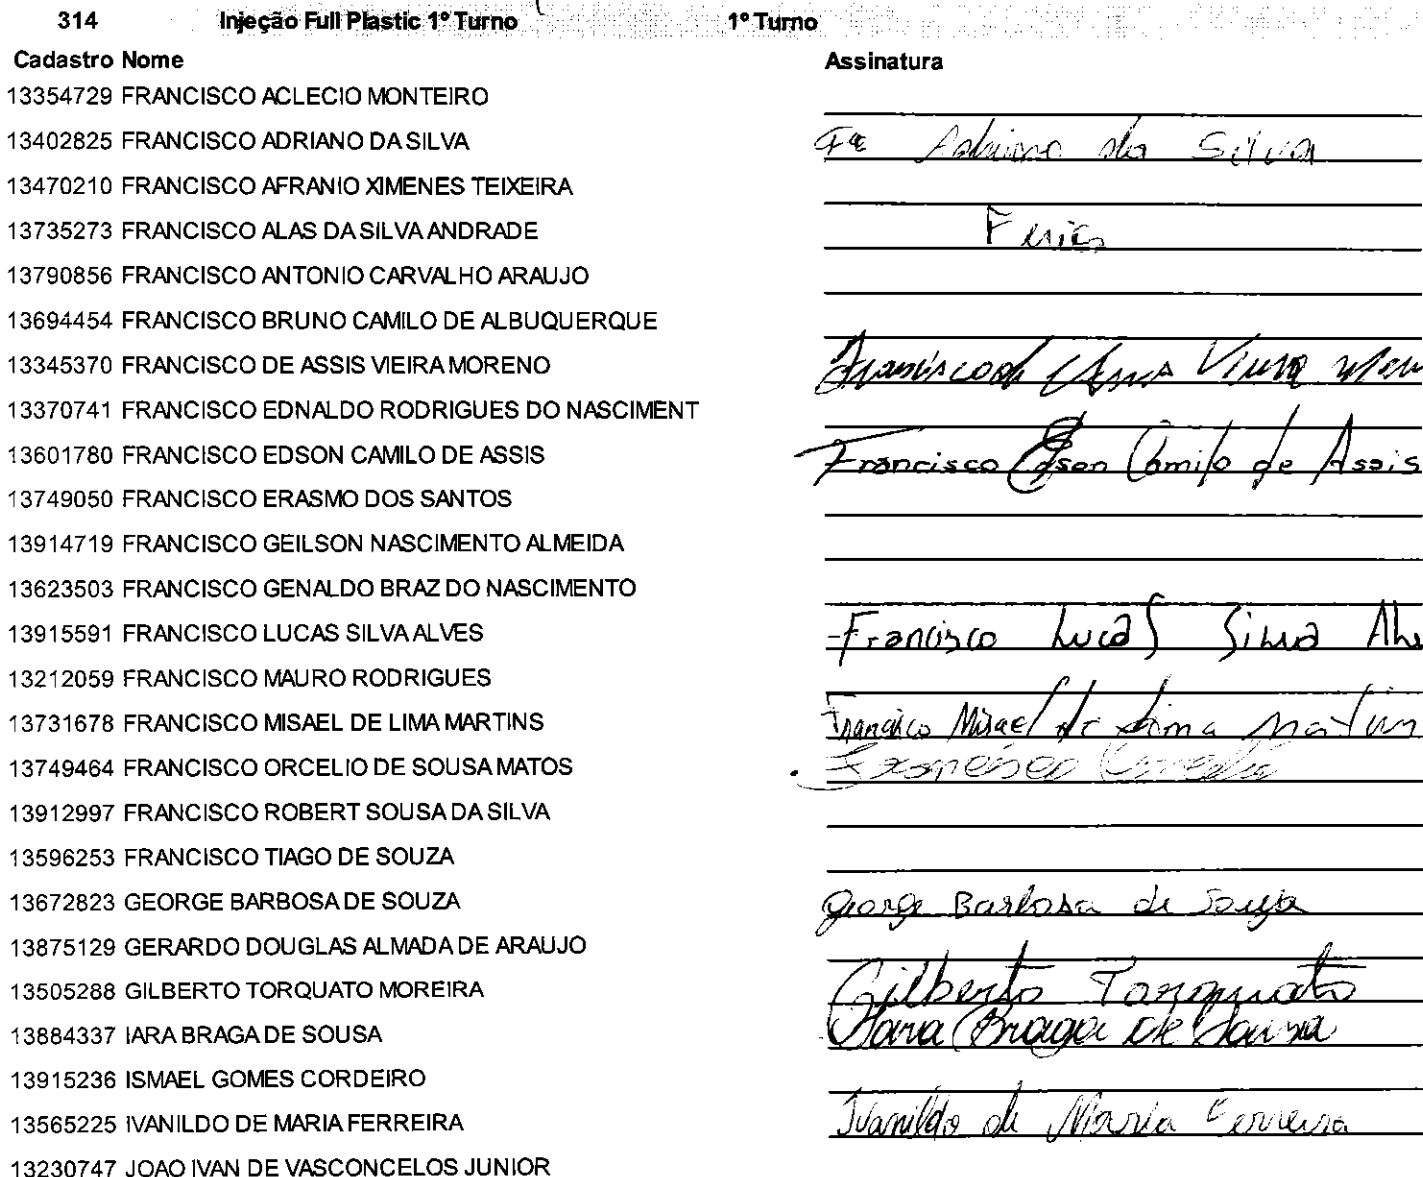 314 Injeção Full Plastic 1º Turno 1º Turno
Cadastro Nome Assinatura
13354729 FRANCISCO ACLECIO MONTEIRO
13402825 FRANCISCO ADRIANO DA SILVA Fco Adriano da Silva
13470210 FRANCISCO AFRANIO XIMENES TEIXEIRA
13735273 FRANCISCO ALAS DA SILVA ANDRADE Ferias
13790856 FRANCISCO ANTONIO CARVALHO ARAUJO
13694454 FRANCISCO BRUNO CAMILO DE ALBUQUERQUE
13345370 FRANCISCO DE ASSIS VIEIRA MORENO Francisco de Assis Vieira
13370741 FRANCISCO EDNALDO RODRIGUES DO NASCIMENT
13601780 FRANCISCO EDSON CAMILO DE ASSIS Francisco Edson Camilo de Assis
13749050 FRANCISCO ERASMO DOS SANTOS
13914719 FRANCISCO GEILSON NASCIMENTO ALMEIDA
13623503 FRANCISCO GENALDO BRAZ DO NASCIMENTO
13915591 FRANCISCO LUCAS SILVA ALVES Francisco Lucas Silva Alve
13212059 FRANCISCO MAURO RODRIGUES
13731678 FRANCISCO MISAEL DE LIMA MARTINS Francisco Misael de Lima Martin
13749464 FRANCISCO ORCELIO DE SOUSA MATOS Francisco
13912997 FRANCISCO ROBERT SOUSA DA SILVA
13596253 FRANCISCO TIAGO DE SOUZA
13672823 GEORGE BARBOSA DE SOUZA George Barbosa de Souza
13875129 GERARDO DOUGLAS ALMADA DE ARAUJO
13505288 GILBERTO TORQUATO MOREIRA Gilberto Torquato
13884337 IARA BRAGA DE SOUSA Iara Braga de Sousa
13915236 ISMAEL GOMES CORDEIRO
13565225 IVANILDO DE MARIA FERREIRA Ivanildo de Maria Ferreira
13230747 JOAO IVAN DE VASCONCELOS JUNIOR